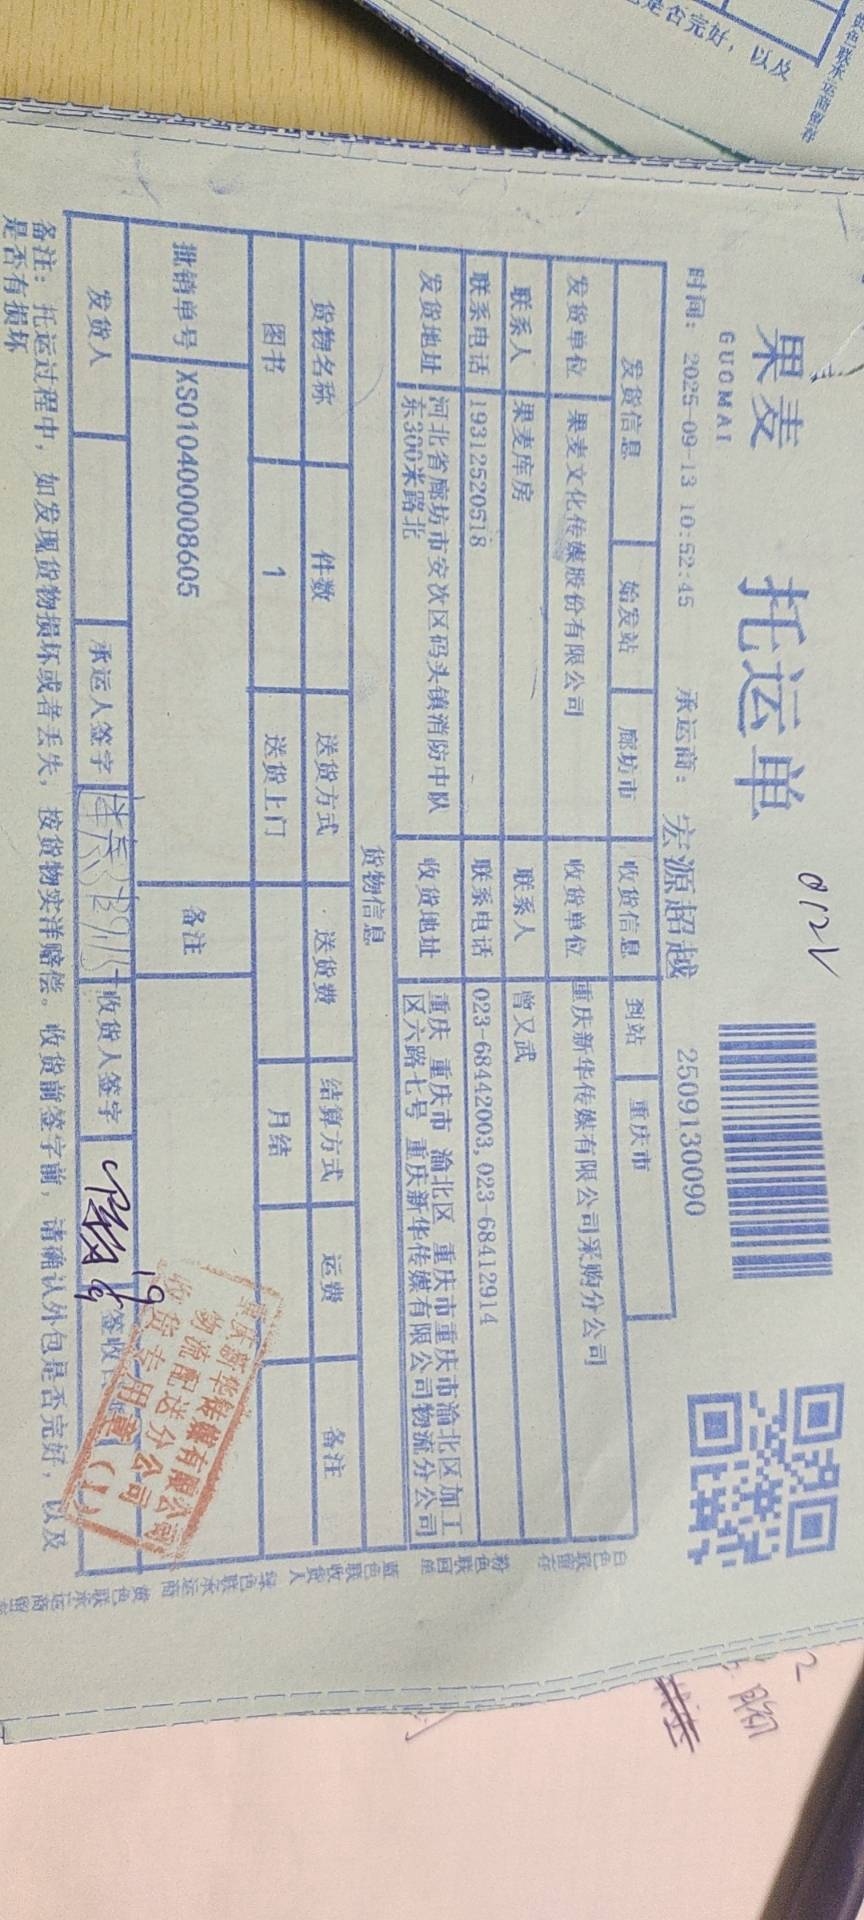 果麦
GUOMAI
托运单
012V
时间: 2025-09-13 10:52:45 承运商: 宏源超越 2509130090
发货信息 始发站 廊坊市 收货信息 到站 重庆市
发货单位 果麦文化传媒股份有限公司 收货单位 重庆新华传媒有限公司采购分公司
联系人 果麦库房 联系人 曾又武
联系电话 19312520518 联系电话 023-68442003,023-68412914
发货地址 河北省廊坊市安次区码头镇消防中队
东300米路北
收货地址 重庆 重庆市 渝北区 重庆市重庆市渝北区加工
区六路七号 重庆新华传媒有限公司物流分公司
货物信息
货物名称 件数 送货方式 送货费 结算方式 运费 备注
图书 1 送货上门 月结
批销单号 XS010400008605 备注
发货人 承运人签字 收货人签字 签收
重庆新华传媒有限公司
物流配送分公司
收货专用章(1)
备注: 托运过程中, 如发现货物损坏或者丢失, 按货物实洋赔偿。收货前签字前, 请确认外包是否完好, 以及
是否有损坏
白色联留存 粉色联回单 蓝色联收货人 绿色联承运商 黄色联承运商留存
是否完好, 以及
黄色联承运商留存